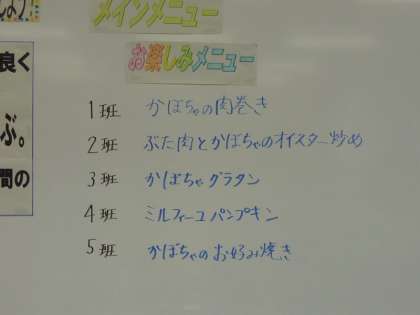 しよう!
メインメニュー
お楽しみメニュー
良く
ぶ。
間の
1班 かぼちゃの肉巻き
2班 ぶた肉とかぼちゃのオイスター炒め
3班 かぼちゃグラタン
4班 ミルフィーユパンプキン
5班 かぼちゃのお好み焼き